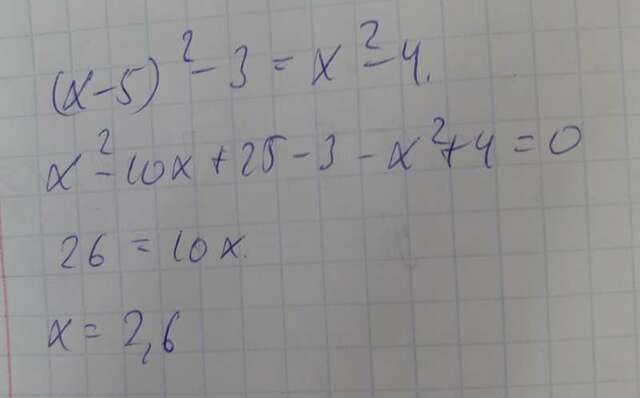 (x-5)²-3=x²-4.
x²-10x+25-3-x²+4=0
26=10x.
x=2,6